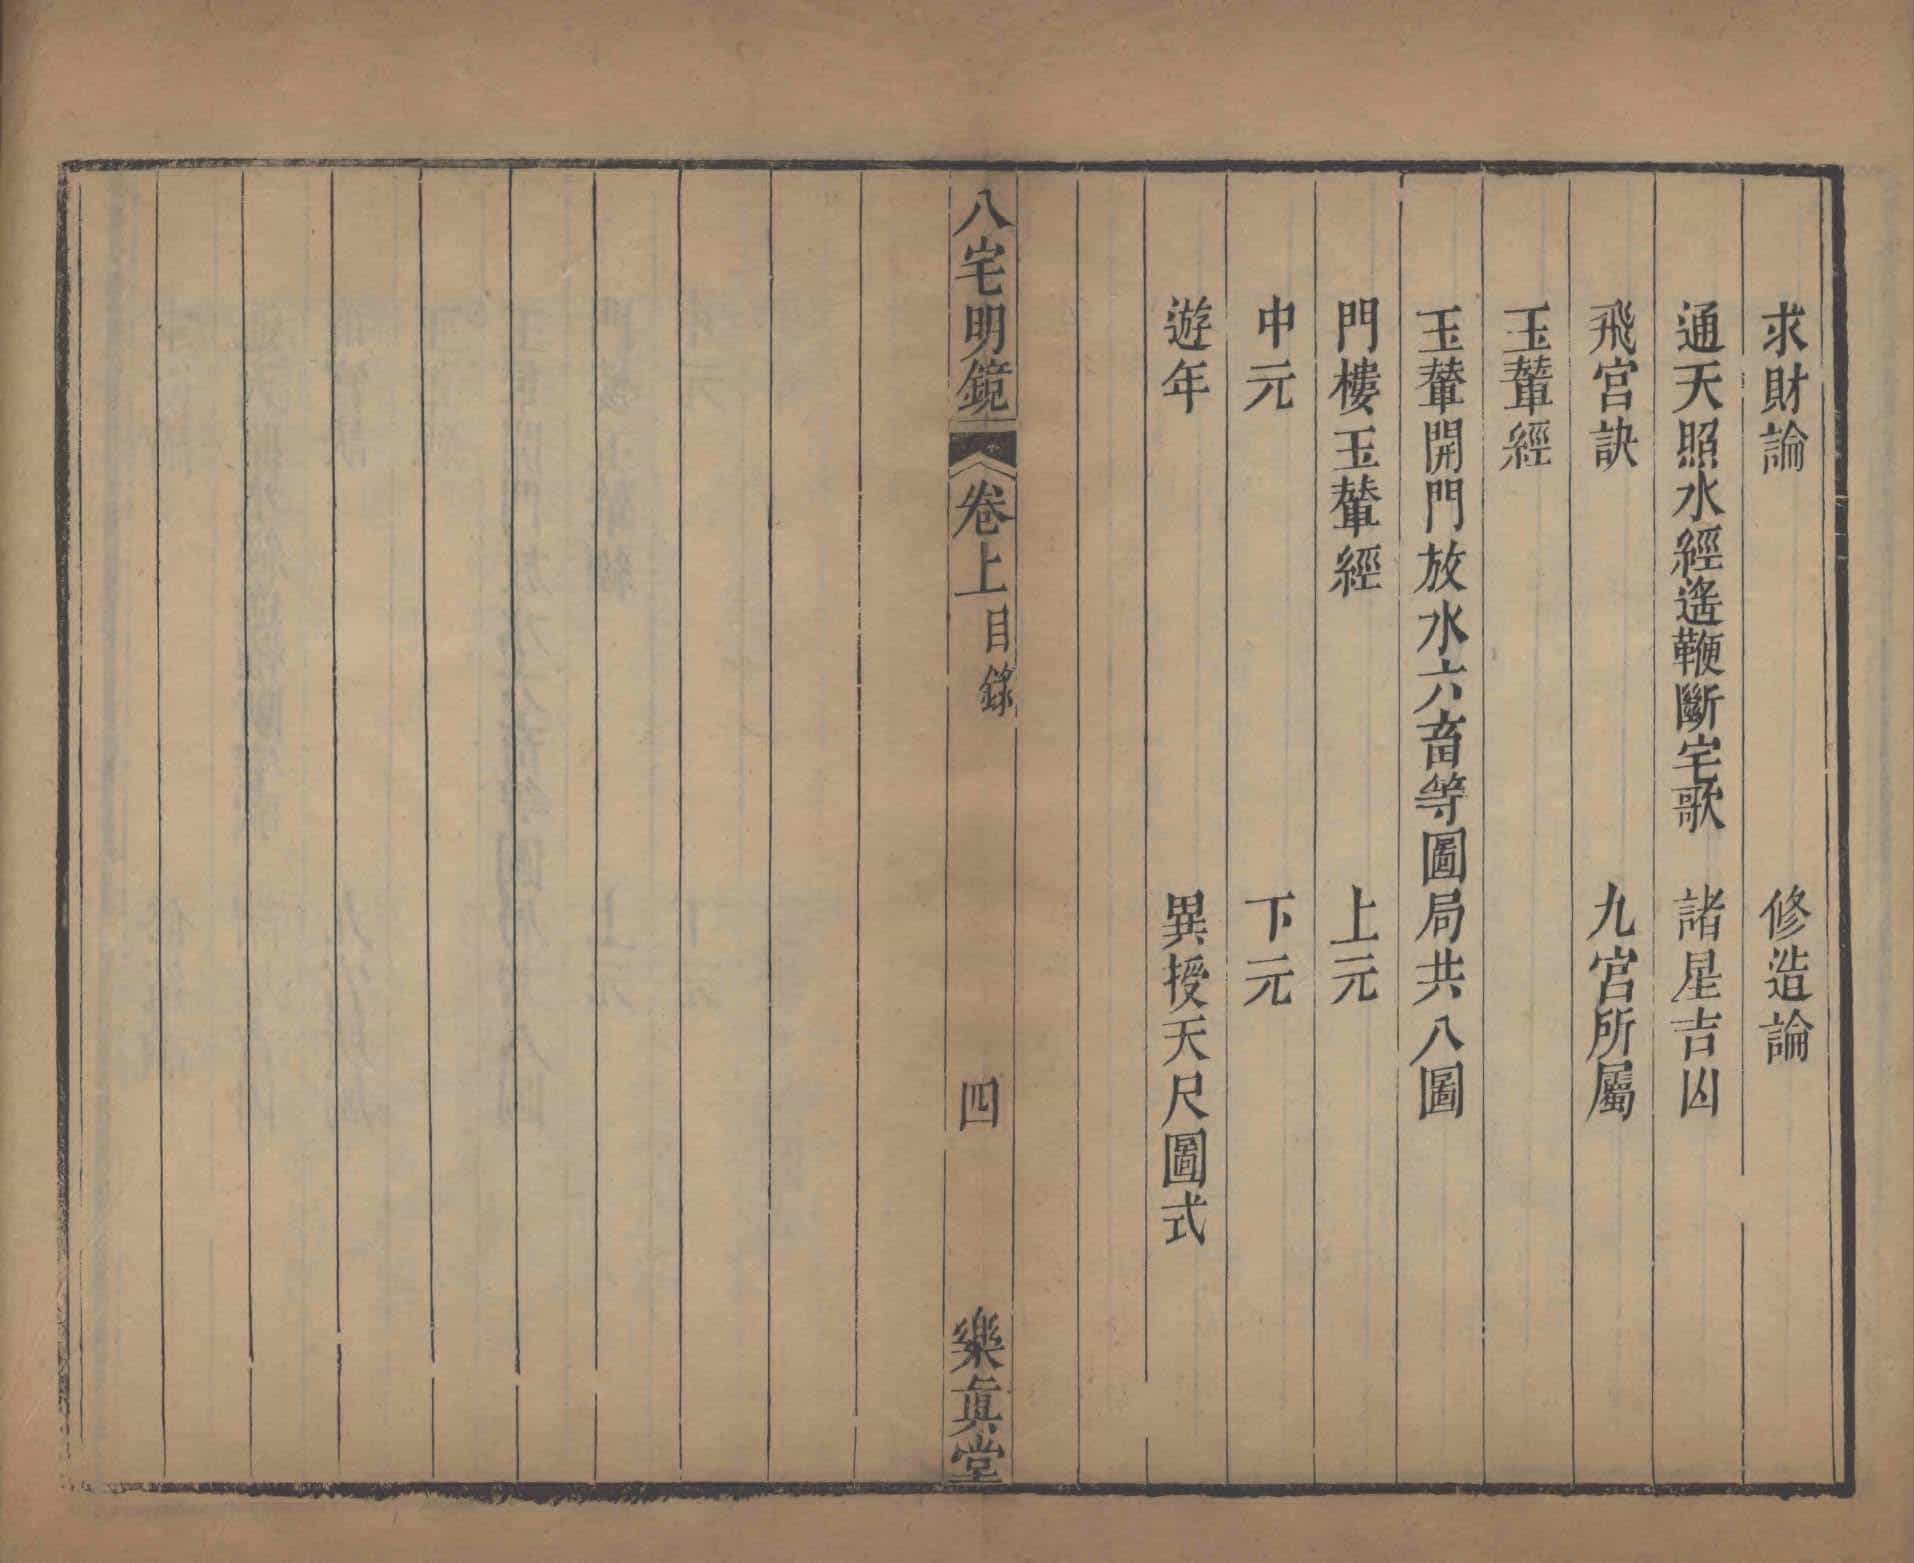 求財論　修造論
通天照水經遙鞭斷宅歌　諸星吉凶
飛宮訣　九宮所屬
玉輦經
玉輦開門放水六畜等圖局共八圖
門樓玉輦經　上元
中元　下元
遊年　異授天尺圖式
八宅明鏡　卷上　目錄　四　樂眞堂